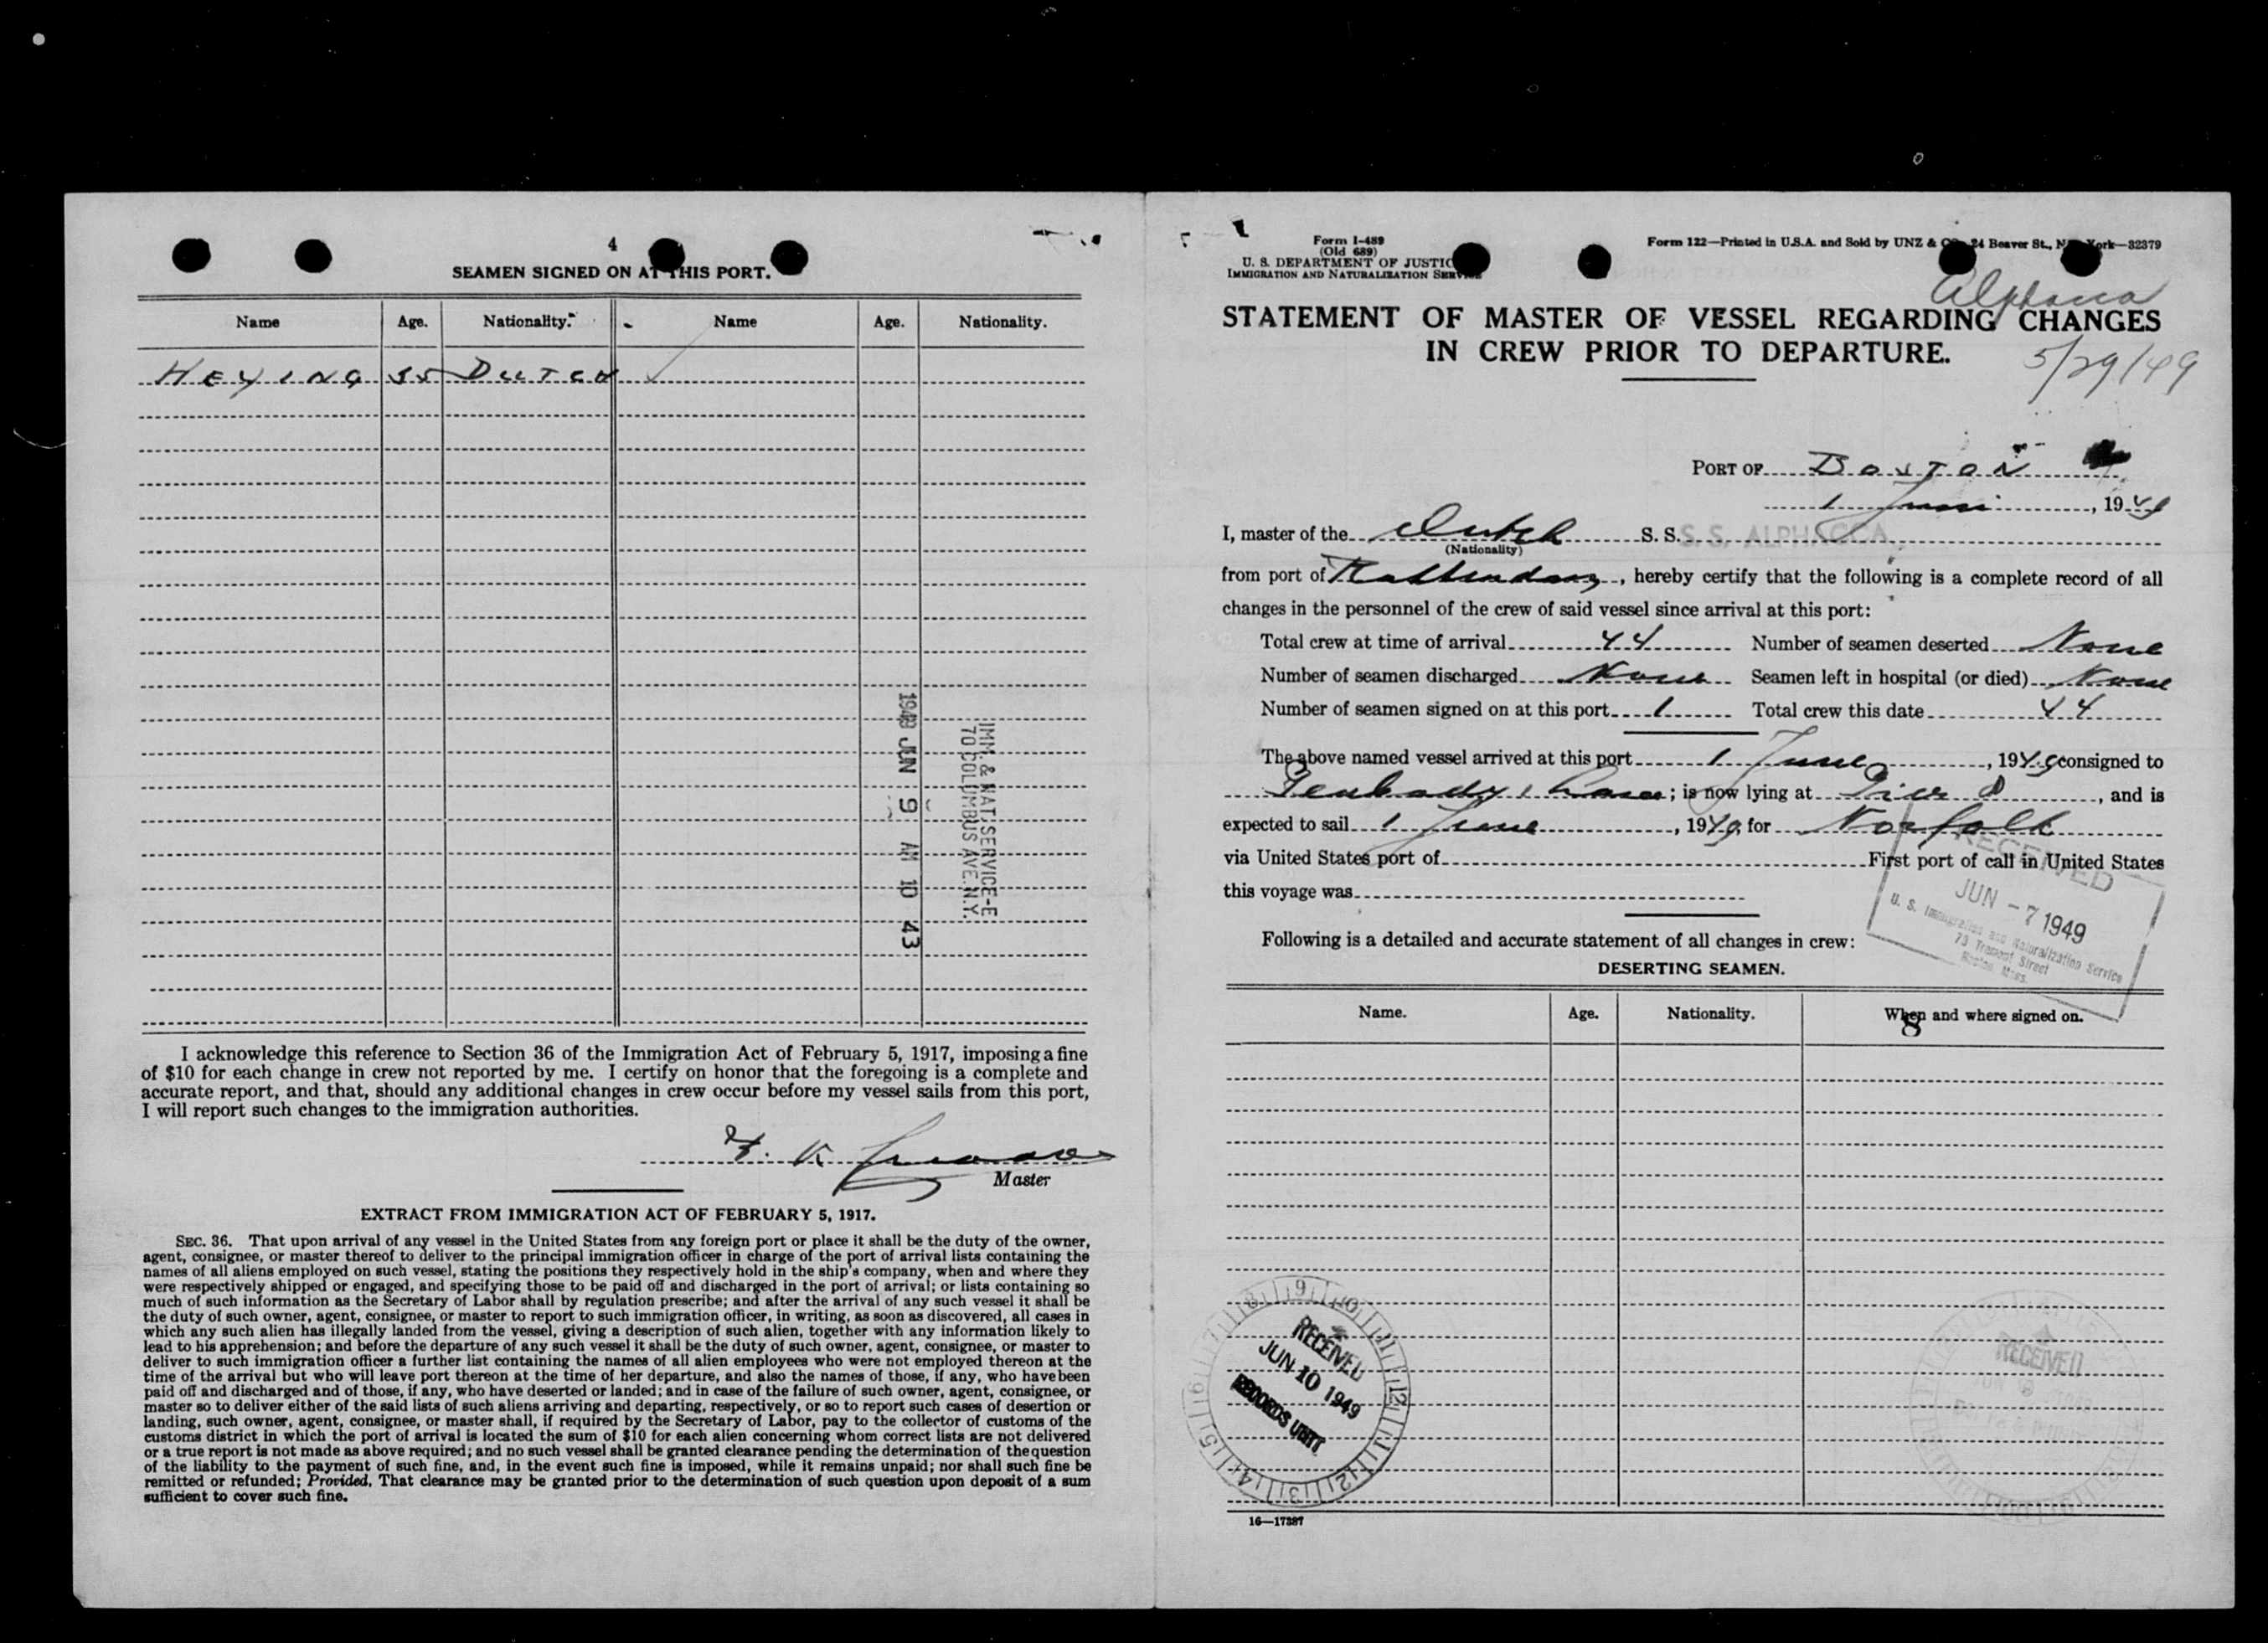 4
SEAMEN SIGNED ON AT THIS PORT.
Name Age. Nationality. Name Age. Nationality.
HEYING 35 DUTCH
IMM. & NAT. SERVICE-E
70 COLUMBUS AVE. N.Y.
1949 JUN 9 AM 10 43
I acknowledge this reference to Section 36 of the Immigration Act of February 5, 1917, imposing a fine
of $10 for each change in crew not reported by me. I certify on honor that the foregoing is a complete and
accurate report, and that, should any additional changes in crew occur before my vessel sails from this port,
I will report such changes to the immigration authorities.
Master
EXTRACT FROM IMMIGRATION ACT OF FEBRUARY 5, 1917.
SEC. 36. That upon arrival of any vessel in the United States from any foreign port or place it shall be the duty of the owner,
agent, consignee, or master thereof to deliver to the principal immigration officer in charge of the port of arrival lists containing the
names of all aliens employed on such vessel, stating the positions they respectively hold in the ship's company, when and where they
were respectively shipped or engaged, and specifying those to be paid off and discharged in the port of arrival; or lists containing so
much of such information as the Secretary of Labor shall by regulation prescribe; and after the arrival of any such vessel it shall be
the duty of such owner, agent, consignee, or master to report to such immigration officer, in writing, as soon as discovered, all cases in
which any such alien has illegally landed from the vessel, giving a description of such alien, together with any information likely to
lead to his apprehension; and before the departure of any such vessel it shall be the duty of such owner, agent, consignee, or master to
deliver to such immigration officer a further list containing the names of all alien employees who were not employed thereon at the
time of the arrival but who will leave port thereon at the time of her departure, and also the names of those, if any, who have been
paid off and discharged and of those, if any, who have deserted or landed; and in case of the failure of such owner, agent, consignee, or
master so to deliver either of the said lists of such aliens arriving and departing, respectively, or so to report such cases of desertion or
landing, such owner, agent, consignee, or master shall, if required by the Secretary of Labor, pay to the collector of customs of the
customs district in which the port of arrival is located the sum of $10 for each alien concerning whom correct lists are not delivered
or a true report is not made as above required; and no such vessel shall be granted clearance pending the determination of the question
of the liability to the payment of such fine, and, in the event such fine is imposed, while it remains unpaid; nor shall such fine be
remitted or refunded; Provided, That clearance may be granted prior to the determination of such question upon deposit of a sum
sufficient to cover such fine.
Form I-489
(Old 689)
U. S. DEPARTMENT OF JUSTICE
IMMIGRATION AND NATURALIZATION SERVICE
Form 122—Printed in U.S.A. and Sold by UNZ & Co., 24 Beaver St., New York—32379
STATEMENT OF MASTER OF VESSEL REGARDING CHANGES
IN CREW PRIOR TO DEPARTURE.
5/29/49
PORT OF BOSTON
1 Juni, 1949
I, master of the Dutch S. S. S. S. ALPHACCA
(Nationality)
from port of Rotterdam, hereby certify that the following is a complete record of all
changes in the personnel of the crew of said vessel since arrival at this port:
Total crew at time of arrival 44 Number of seamen deserted None
Number of seamen discharged None Seamen left in hospital (or died) None
Number of seamen signed on at this port 1 Total crew this date 44
The above named vessel arrived at this port 1 June, 1949 consigned to
Peabody; is now lying at Pier 8, and is
expected to sail 1 June, 1949, for Norfolk
via United States port of First port of call in United States
this voyage was
RECEIVED
JUN - 7 1949
U. S. Immigration and Naturalization Service
73 Tremont Street
Boston, Mass.
Following is a detailed and accurate statement of all changes in crew:
DESERTING SEAMEN.
Name. Age. Nationality. When and where signed on.
8
RECEIVED
JUN 10 1949
RECORDS UNIT
RECEIVED
16—17387